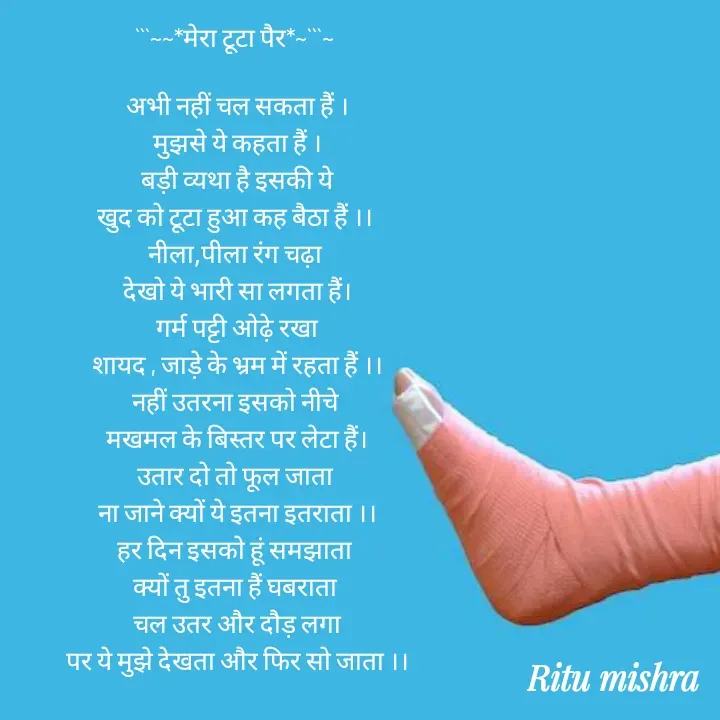 ```~~*मेरा टूटा पैर*~```~
अभी नहीं चल सकता हैं ।
मुझसे ये कहता हैं ।
बड़ी व्यथा है इसकी ये
खुद को टूटा हुआ कह बैठा हैं ।।
नीला,पीला रंग चढ़ा
देखो ये भारी सा लगता हैं।
गर्म पट्टी ओढ़े रखा
शायद , जाड़े के भ्रम में रहता हैं ।।
नहीं उतरना इसको नीचे
मखमल के बिस्तर पर लेटा हैं।
उतार दो तो फूल जाता
ना जाने क्यों ये इतना इतराता ।।
हर दिन इसको हूं समझाता
क्यों तु इतना हैं घबराता
चल उतर और दौड़ लगा
पर ये मुझे देखता और फिर सो जाता ।।
Ritu mishra